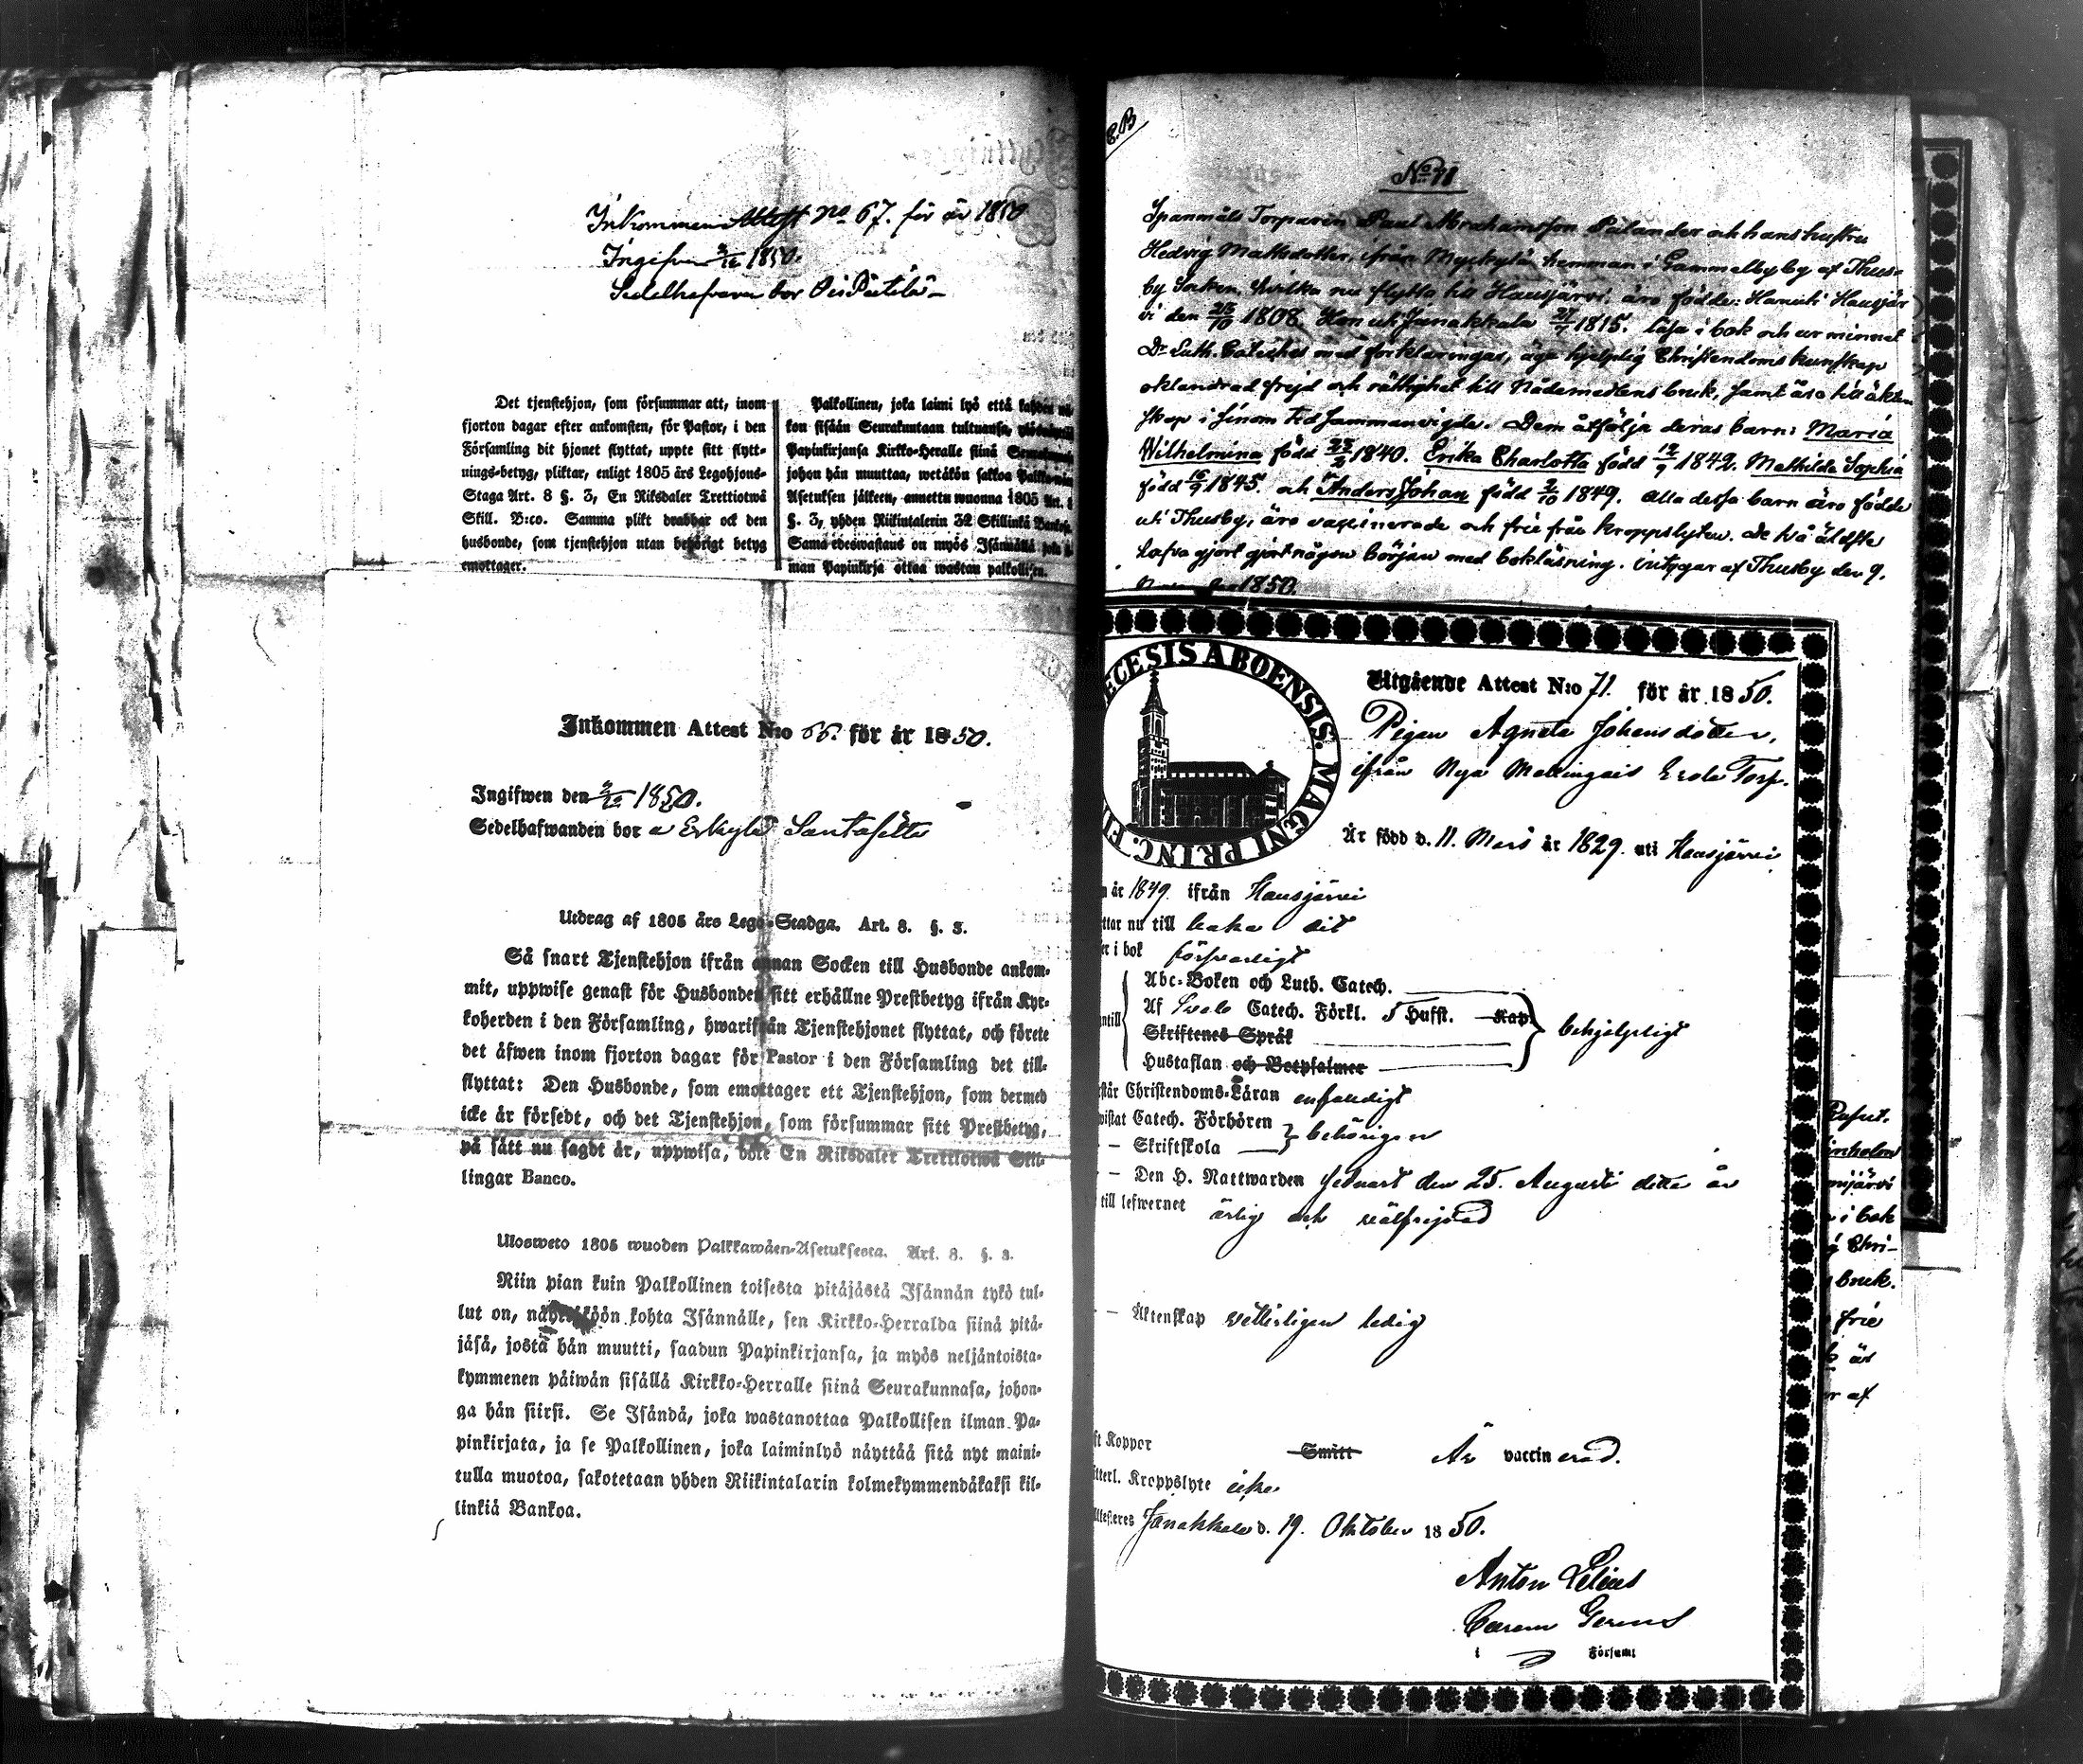 Inkommen Attest no 67. för år 1850
Ingifven 2/12 1850.
Sedelhafvaren bor Ois Pietilä
Det tjenstehjon, som försummar att, inom
fjorton dagar efter ankomsten, för Pastor, i den
Församling dit hjonet flyttat, uppte sitt flytt-
nings-betyg, pliktar, enligt 1805 års Legohjons-
Staga Art. 8 §. 3, En Riksdaler Trettiotwå
Skill. B:co. Samma plikt drabbar ock den
husbonde, som tjenstehjon utan behörigt betyg
emottager.
Palkollinen, joka laimi lyö että
kon sisään Seurakuntaan tultuansa,
Papinkirjansa Kirkko-Heralle siinä
johon hän muuttaa, wetäkön sakkoa
Asetuksen jälkeen, annettu wuonna 1805 Art.
§. 3, yhden Riikintalerin 32 Skillinkiä
Sama edeswastaus on myös Isännällä
man Papinkirja ottaa wastan palkollisen.
Inkommen Attest N:o 66. för år 1850.
Ingifwen den 2/12 1850.
Sedelhafwanden bor a Erkylä Santasilta
Utdrag af 1805 års Lego-Stadga. Art. 8. §. 3.
Så snart Tjenstehjon ifrån annan Socken till Husbonde ankom-
mit, uppwise genast för Husbonden sitt erhållne Prestbetyg ifrån Kyr-
koherden i den Församling, hwarifrån Tjenstehjonet flyttat, och förete
det äfwen inom fjorton dagar för Pastor i den Församling det till-
flyttat: Den Husbonde, som emottager ett Tjenstehjon, som dermed
icke är försedt, och det Tjenstehjon, som försummar sitt Prestbetyg,
på sätt nu sagdt är, uppwisa, böte En Riksdaler Trettiotwå Skil-
lingar Banco.
Ulosweto 1805 wuoden Palkkawäen-Asetuksesta. Art. 8. §. 3.
Niin pian kuin Palkollinen toisesta pitäjästä Isännän tykö tul-
lut on, näyttäköön kohta Isännälle, sen Kirkko-Herralda siinä pitä-
jäsä, josta hän muutti, saadun Papinkirjansa, ja myös neljäntoista-
kymmenen päiwän sisällä Kirkko-Herralle siinä Seurakunnasa, johon-
ga hän siirsi. Se Isändä, joka wastanottaa Palkollisen ilman Pa-
pinkirjata, ja se Palkollinen, joka laiminlyö näyttää sitä nyt maini-
tulla muotoa, sakotetaan yhden Riikintalarin kolmekymmendäkaksi kil-
linkiä Bankoa.
No 71
Spanmåls Torparen Paul Abrahamsson Pailander och hans hustru
Hedvig Mattsdotter, ifrån Myckylä hemman i Gammelby by af Thus-
by Socken, hvilka nu flytta till Hausjärvi, äro födde: Han uti Hausjär
vi den 25/10 1808. Hon uti Janakkala 27/7 1815. läsa i bok och ur minnet
Dr Luth. Cateches med förklaringar, äga hjelplig Christendoms kunskap
oklandrad frejd och rättighet till Nådemedlens bruk, samt äro till äkten
skap i sinom tid sammanvigde. Dem åtfölja deras barn: Maria
Wilhelmina född 23/2 1840. Erika Charlotta född 12/9 1842. Mathilda Sophia
född 16/9 1845. och Anders Johan född 2/10 1849. Alla dessa barn äro födde
uti Thusby, äro vaxinerade och frie från kroppslyten. De två äldste
hafva gjort gjort någon början med bokläsning. intygar af Thusby den 9.
November 1850.
DIOECESIS ABOENSIS. MAGNI PRINC.
Utgående Attest N:o 71. för år 1850.
Pigan Agneta Johansdotter,
ifrån Nya Mallingais Erola Torp.
Är född d. 11. Mars år 1829. uti Hausjärvi
år 1849. ifrån Hausjärvi
nu till baka dit
i bok försvarligt
Abc-Boken och Luth. Catech.
Af Svebi Catech. Förkl. 5 Hufst. Kap.
Skriftenes Språk
Hustaflan och Botpsalmer
behjelpligt
Christendoms-Läran enfaldigt
Catech. Förhören
– Skriftskola
behörigen
– Den H. Nattwarden sednast den 25. Augusti detta år
till lefwernet ärlig och välfrejdad
– Äktenskap vetterligen ledig
Koppor Smitt Är vaccinerad.
Kroppslyte icke
Janakkala d. 19. Oktober 1850.
Anton Lilius
i Församl
injärvi
i bok
Chri-
bruk.
frie
är
af